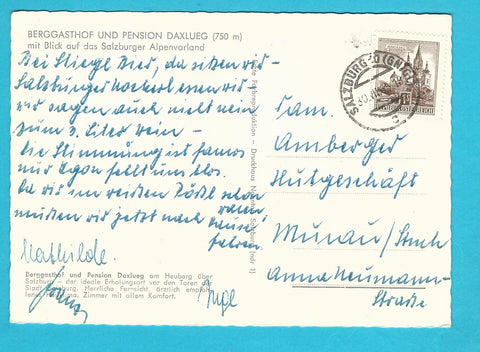 BERGGASTHOF UND PENSION DAXLUEG (750 m)
mit Blick auf das Salzburger Alpenvorland
Bei Stiegl Bier, da sitzen wir –
Salzburger Nockerl essen wir –
wir sagen auch nicht nein
zum 3. Liter Wein –
die Stimmung ist famos
nur Egon fehlt uns blos.
Da wir im weißen Rößl schon
müßen wir jetzt nach
Hause
fahren.
Mathilde.
Ingl
Berggasthof und Pension Daxlueg am Heuberg über
Salzburg – der ideale Erholungsort vor den Toren der
Herrliche Fernsicht, ärztlich
Zimmer mit allem Komfort.
SALZBURG
REPUBLIK ÖSTERREICH
Fam.
Amberger
Hutgeschäft
Murau / Stmk
Anna Neumann-
Straße